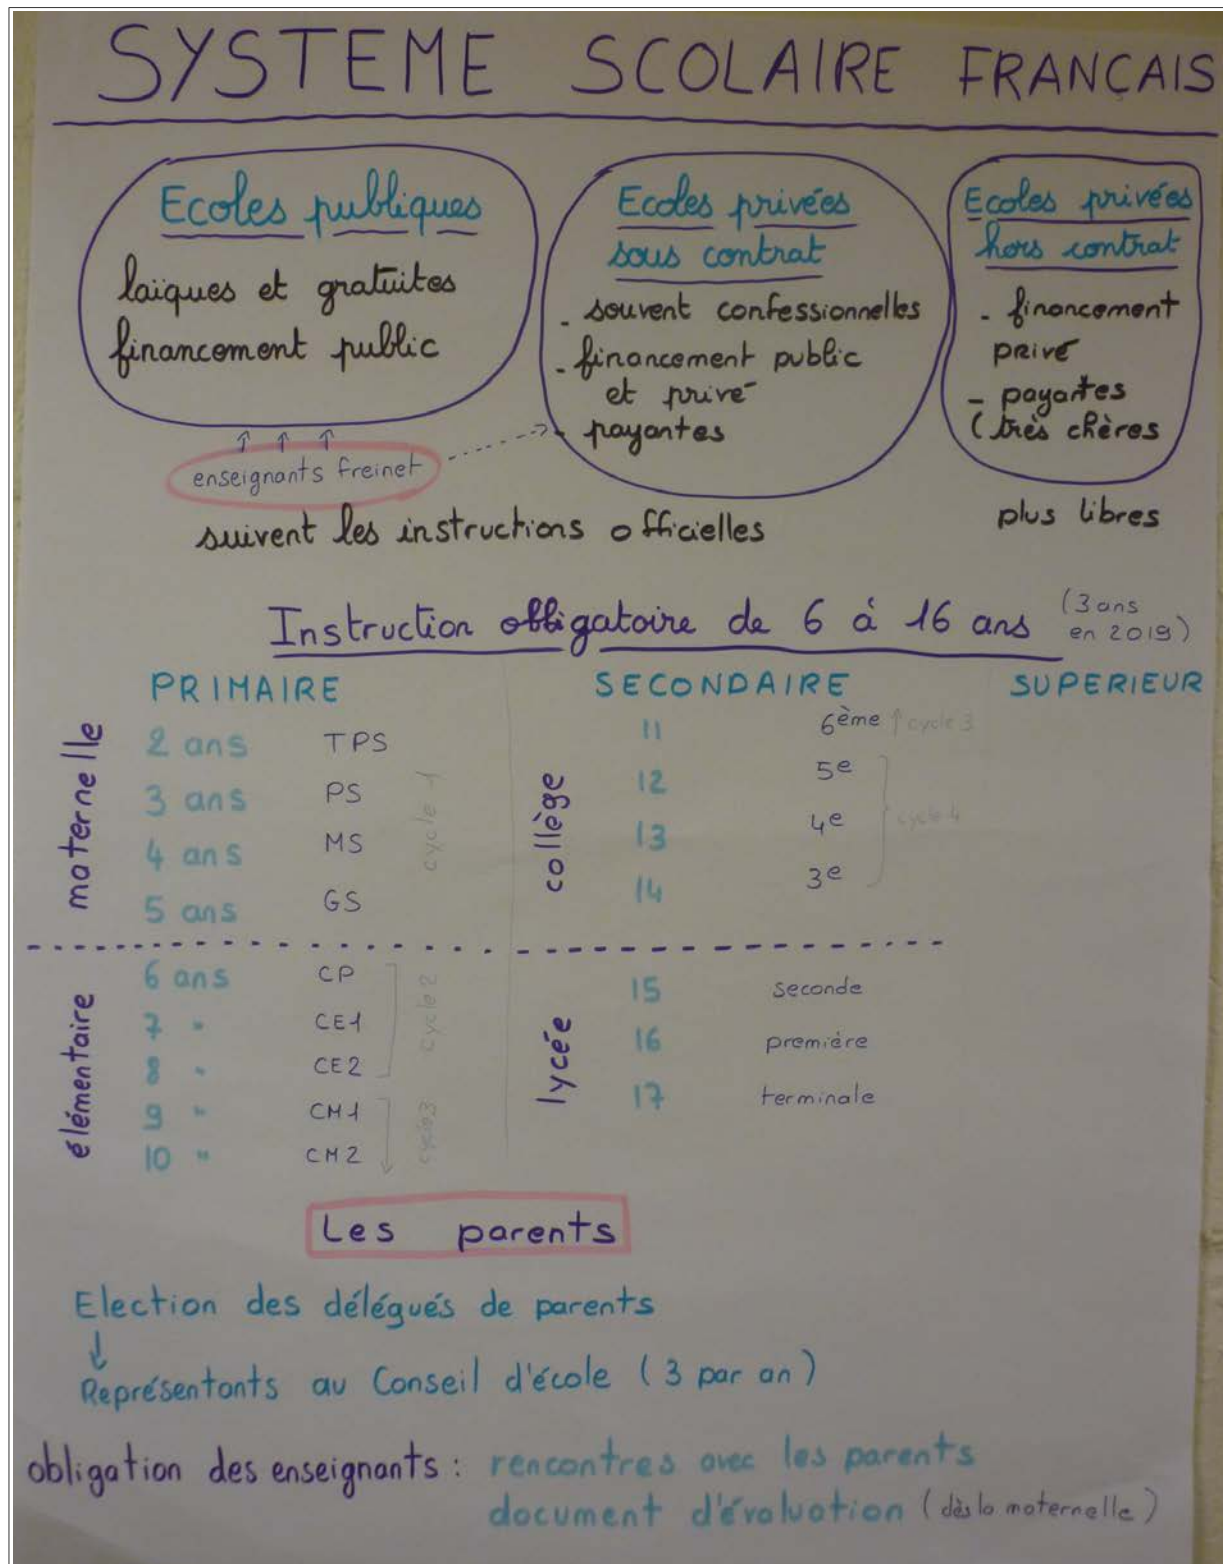 SYSTEME SCOLAIRE FRANÇAIS
Ecoles publiques
laïques et gratuites
financement public
Ecoles privées
sous contrat
- souvent confessionnelles
- financement public
et privé
- payantes
Ecoles privées
hors contrat
- financement
privé
- payantes
(très chères
enseignants freinet
suivent les instructions officielles
plus libres
Instruction obligatoire de 6 à 16 ans (3 ans
en 2019)
PRIMAIRE
maternelle
2 ans TPS
3 ans PS
4 ans MS
5 ans GS
cycle 1
élémentaire
6 ans CP
7 " CE1
8 " CE2
cycle 2
9 " CM1
10 " CM2
cycle 3
SECONDAIRE
collège
11 6ème ↑ cycle 3
12 5e
13 4e
14 3e
cycle 4
lycée
15 seconde
16 première
17 terminale
SUPERIEUR
Les parents
Election des délégués de parents
↓
Représentants au Conseil d'école (3 par an)
obligation des enseignants : rencontres avec les parents
document d'évaluation (dès la maternelle)